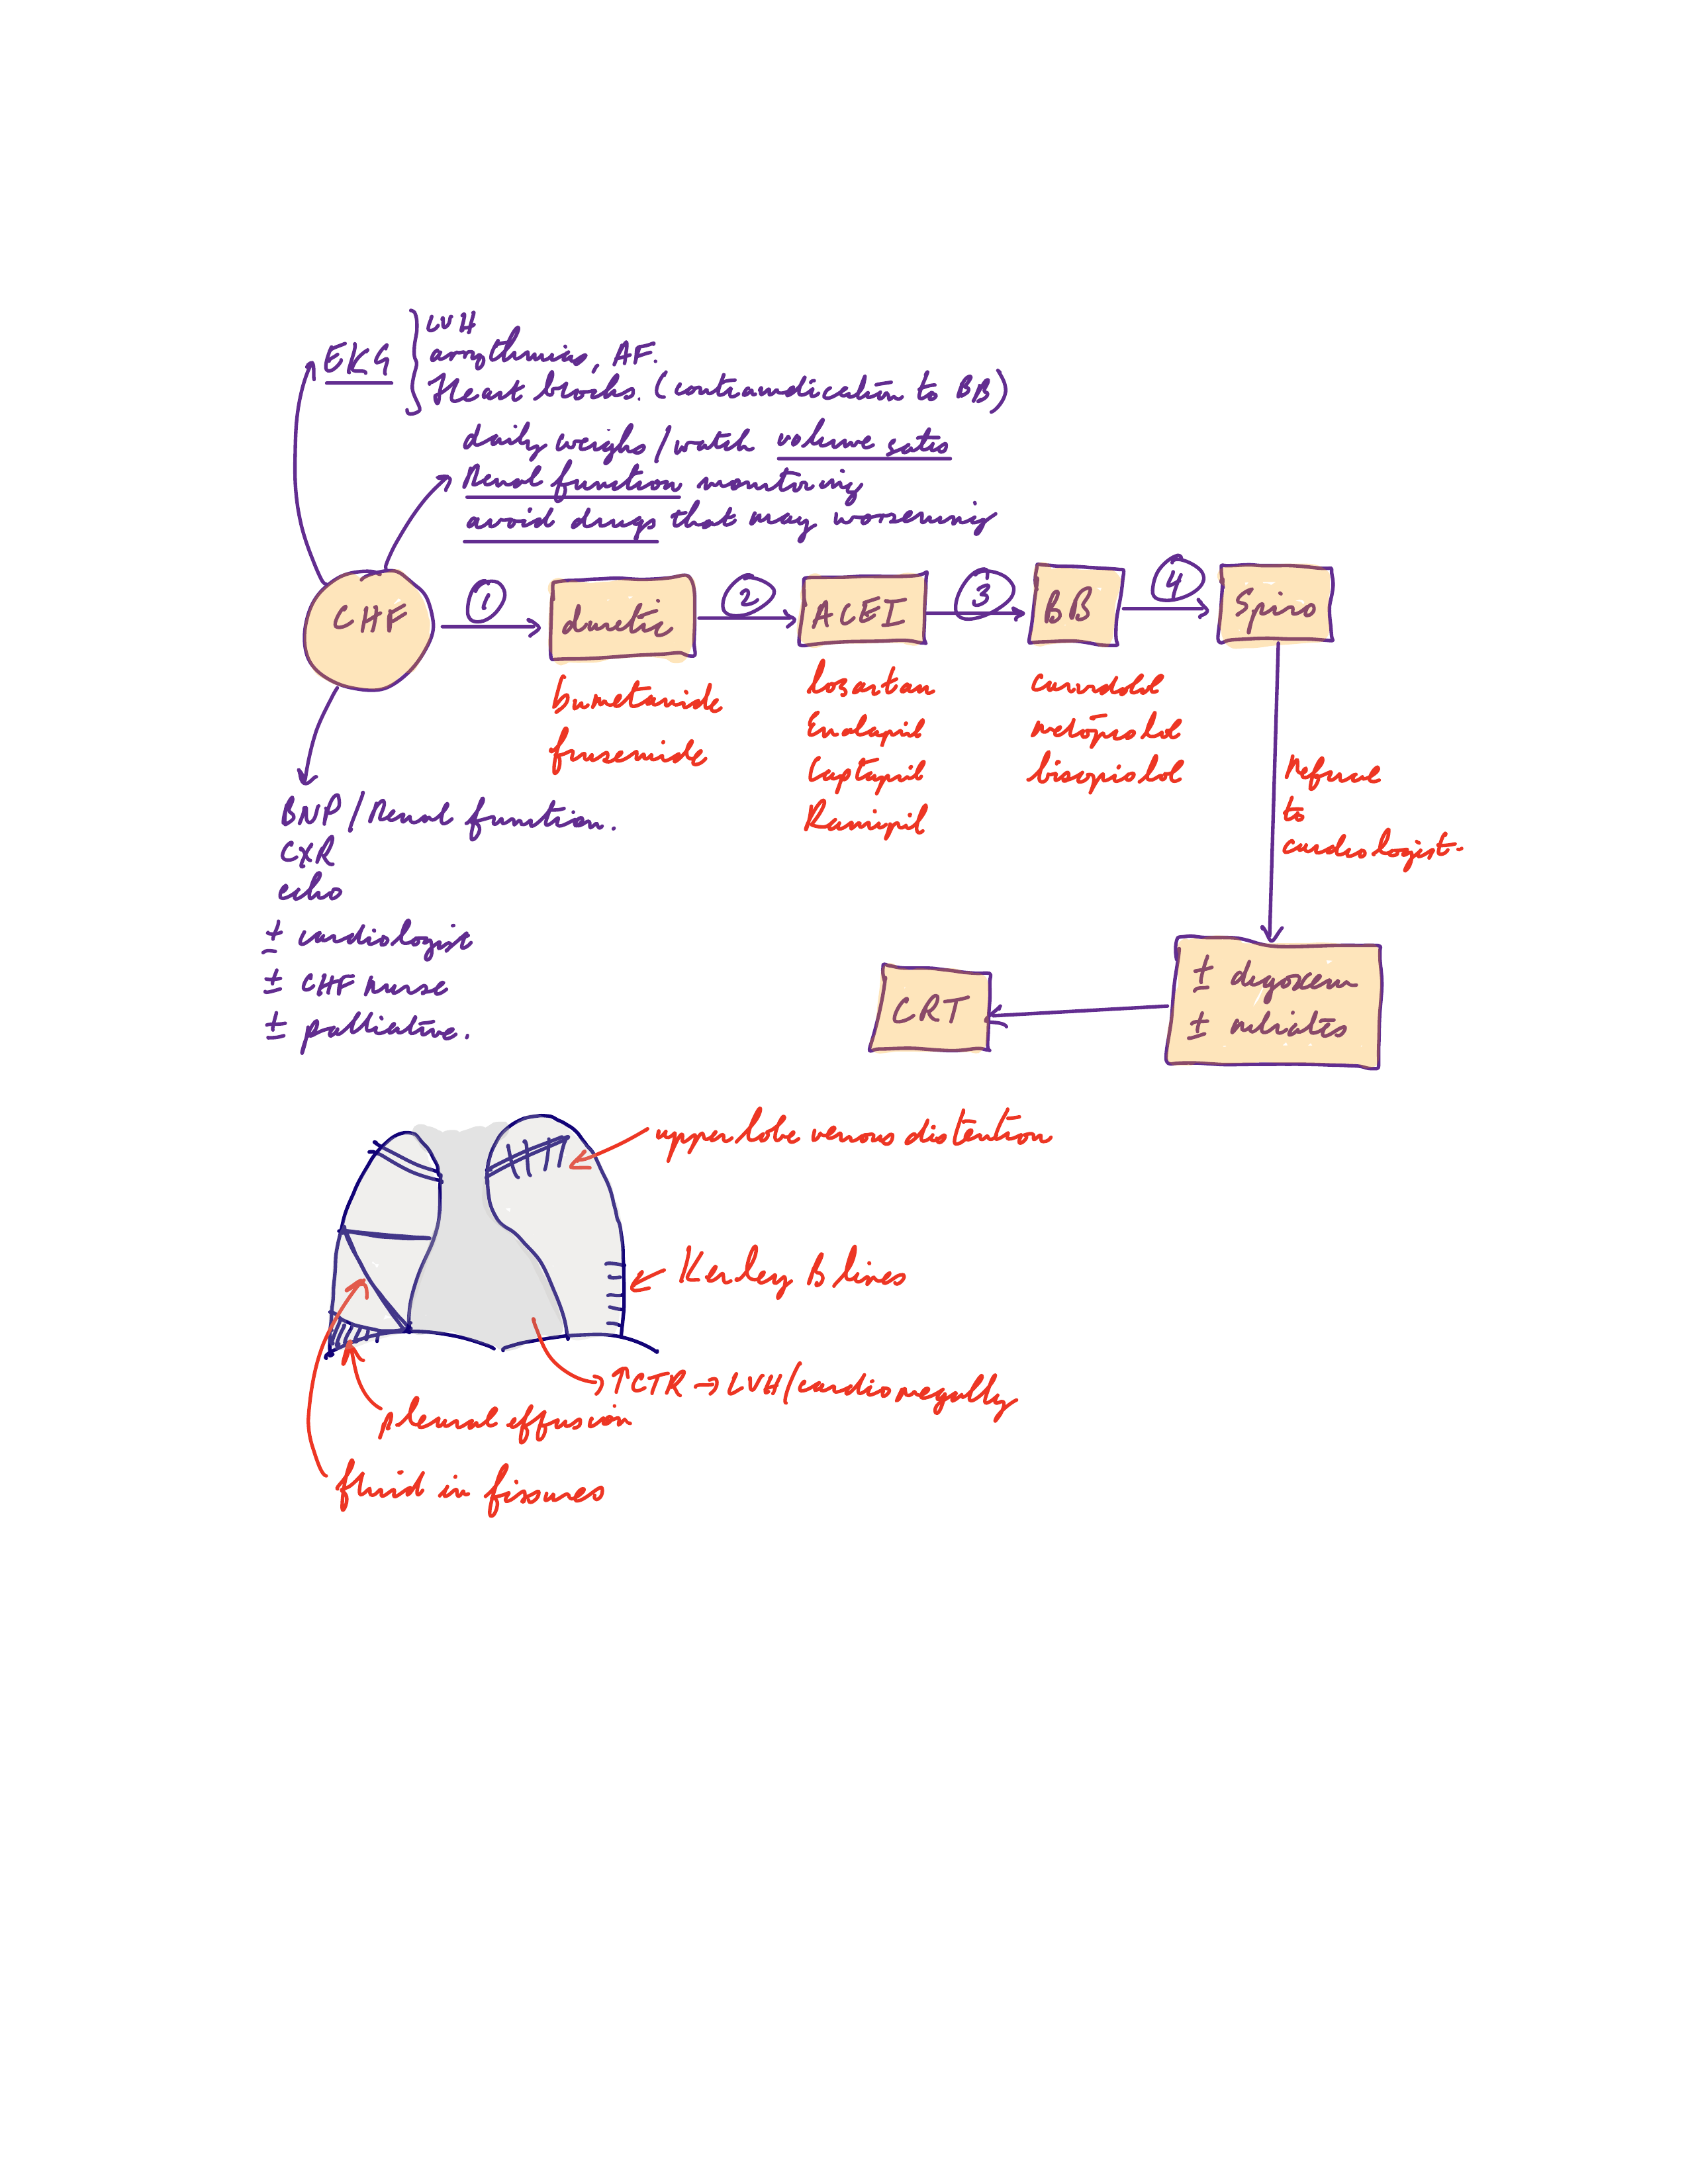 EKG
LVH
arrythmias, AF.
Heart blocks. (contraindication to BB)
daily weighs/watch volume satis
Renal function monitoring
avoid drugs that may worsening
CHF
1
diuretic
2
ACEI
3
BB
4
Spiro
bumetanide
frusemide
losartan
Enalapril
Captapril
Ramipril
carvidolol
metoprolol
bisoprolol
Referral
to
cardiologist.
BNP/Renal function.
CXR
echo
± cardiologist
± CHF nurse
± palliative.
± digoxein
± nitrates
CRT
upper lobe venous distention
Kerley B lines
↑CTR → LVH/cardiomegally
pleural effusion
fluid in fissures